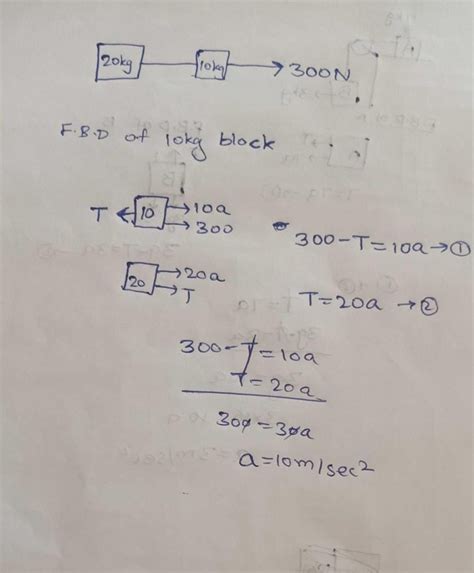 20kg 10kg → 300N
F.B.D of 10kg block
T ← 10 → 10a
→ 300
300-T=10a→①
20 → 20a
→ T
T=20a →②
300-T=10a
T=20a
300=30a
a=10m/sec²